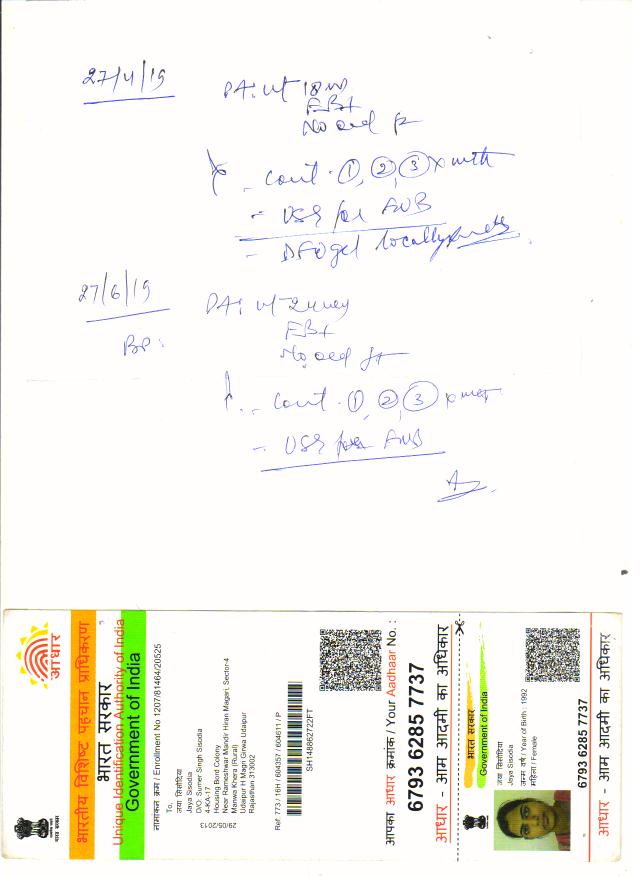 27/4/19
PA: ut 18 w
FB+
No
cont. ①, ②, ③ x mth
- USR for ANB
- gel locally
27/6/19
PA: ut
BP:
FB+
No
cont. ①, ②, ③ x
- USR for ANB
आधार
भारत सरकार
भारतीय विशिष्ट पहचान प्राधिकरण
भारत सरकार
Unique Identification Authority of India
Government of India
नामांकन क्रम / Enrollment No 1207/81464/20525
To,
जया सिसोदिया
Jaya Sisodia
D/O: Sumer Singh Sisodia
4-KA-17
Housing Bord Colony
Near Rameshwar Mandir Hiran Magari, Sector-4
Manwa Khera (Rural)
Udaipur H Magri Girwa Udaipur
Rajasthan 313002
29/05/2013
Ref: 773 / 16H / 604357 / 604611 / P
SH148862722FT
आपका आधार क्रमांक / Your Aadhaar No. :
6793 6285 7737
आधार - आम आदमी का अधिकार
भारत सरकार
Government of India
जया सिसोदिया
Jaya Sisodia
जन्म वर्ष / Year of Birth : 1992
महिला / Female
6793 6285 7737
आधार - आम आदमी का अधिकार